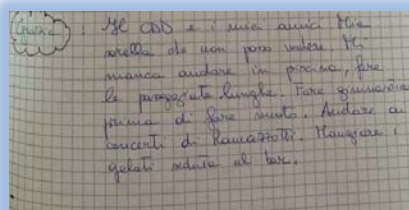 : Il CDD e i miei amici Mia
sorella che non posso vedere. Mi
manca andare in piscina, fare
le passeggiate lunghe. Fare ginnastica
prima di fare nuoto. Andare ai
concerti di Ramazzotti. Mangiare i
gelati seduta al bar.